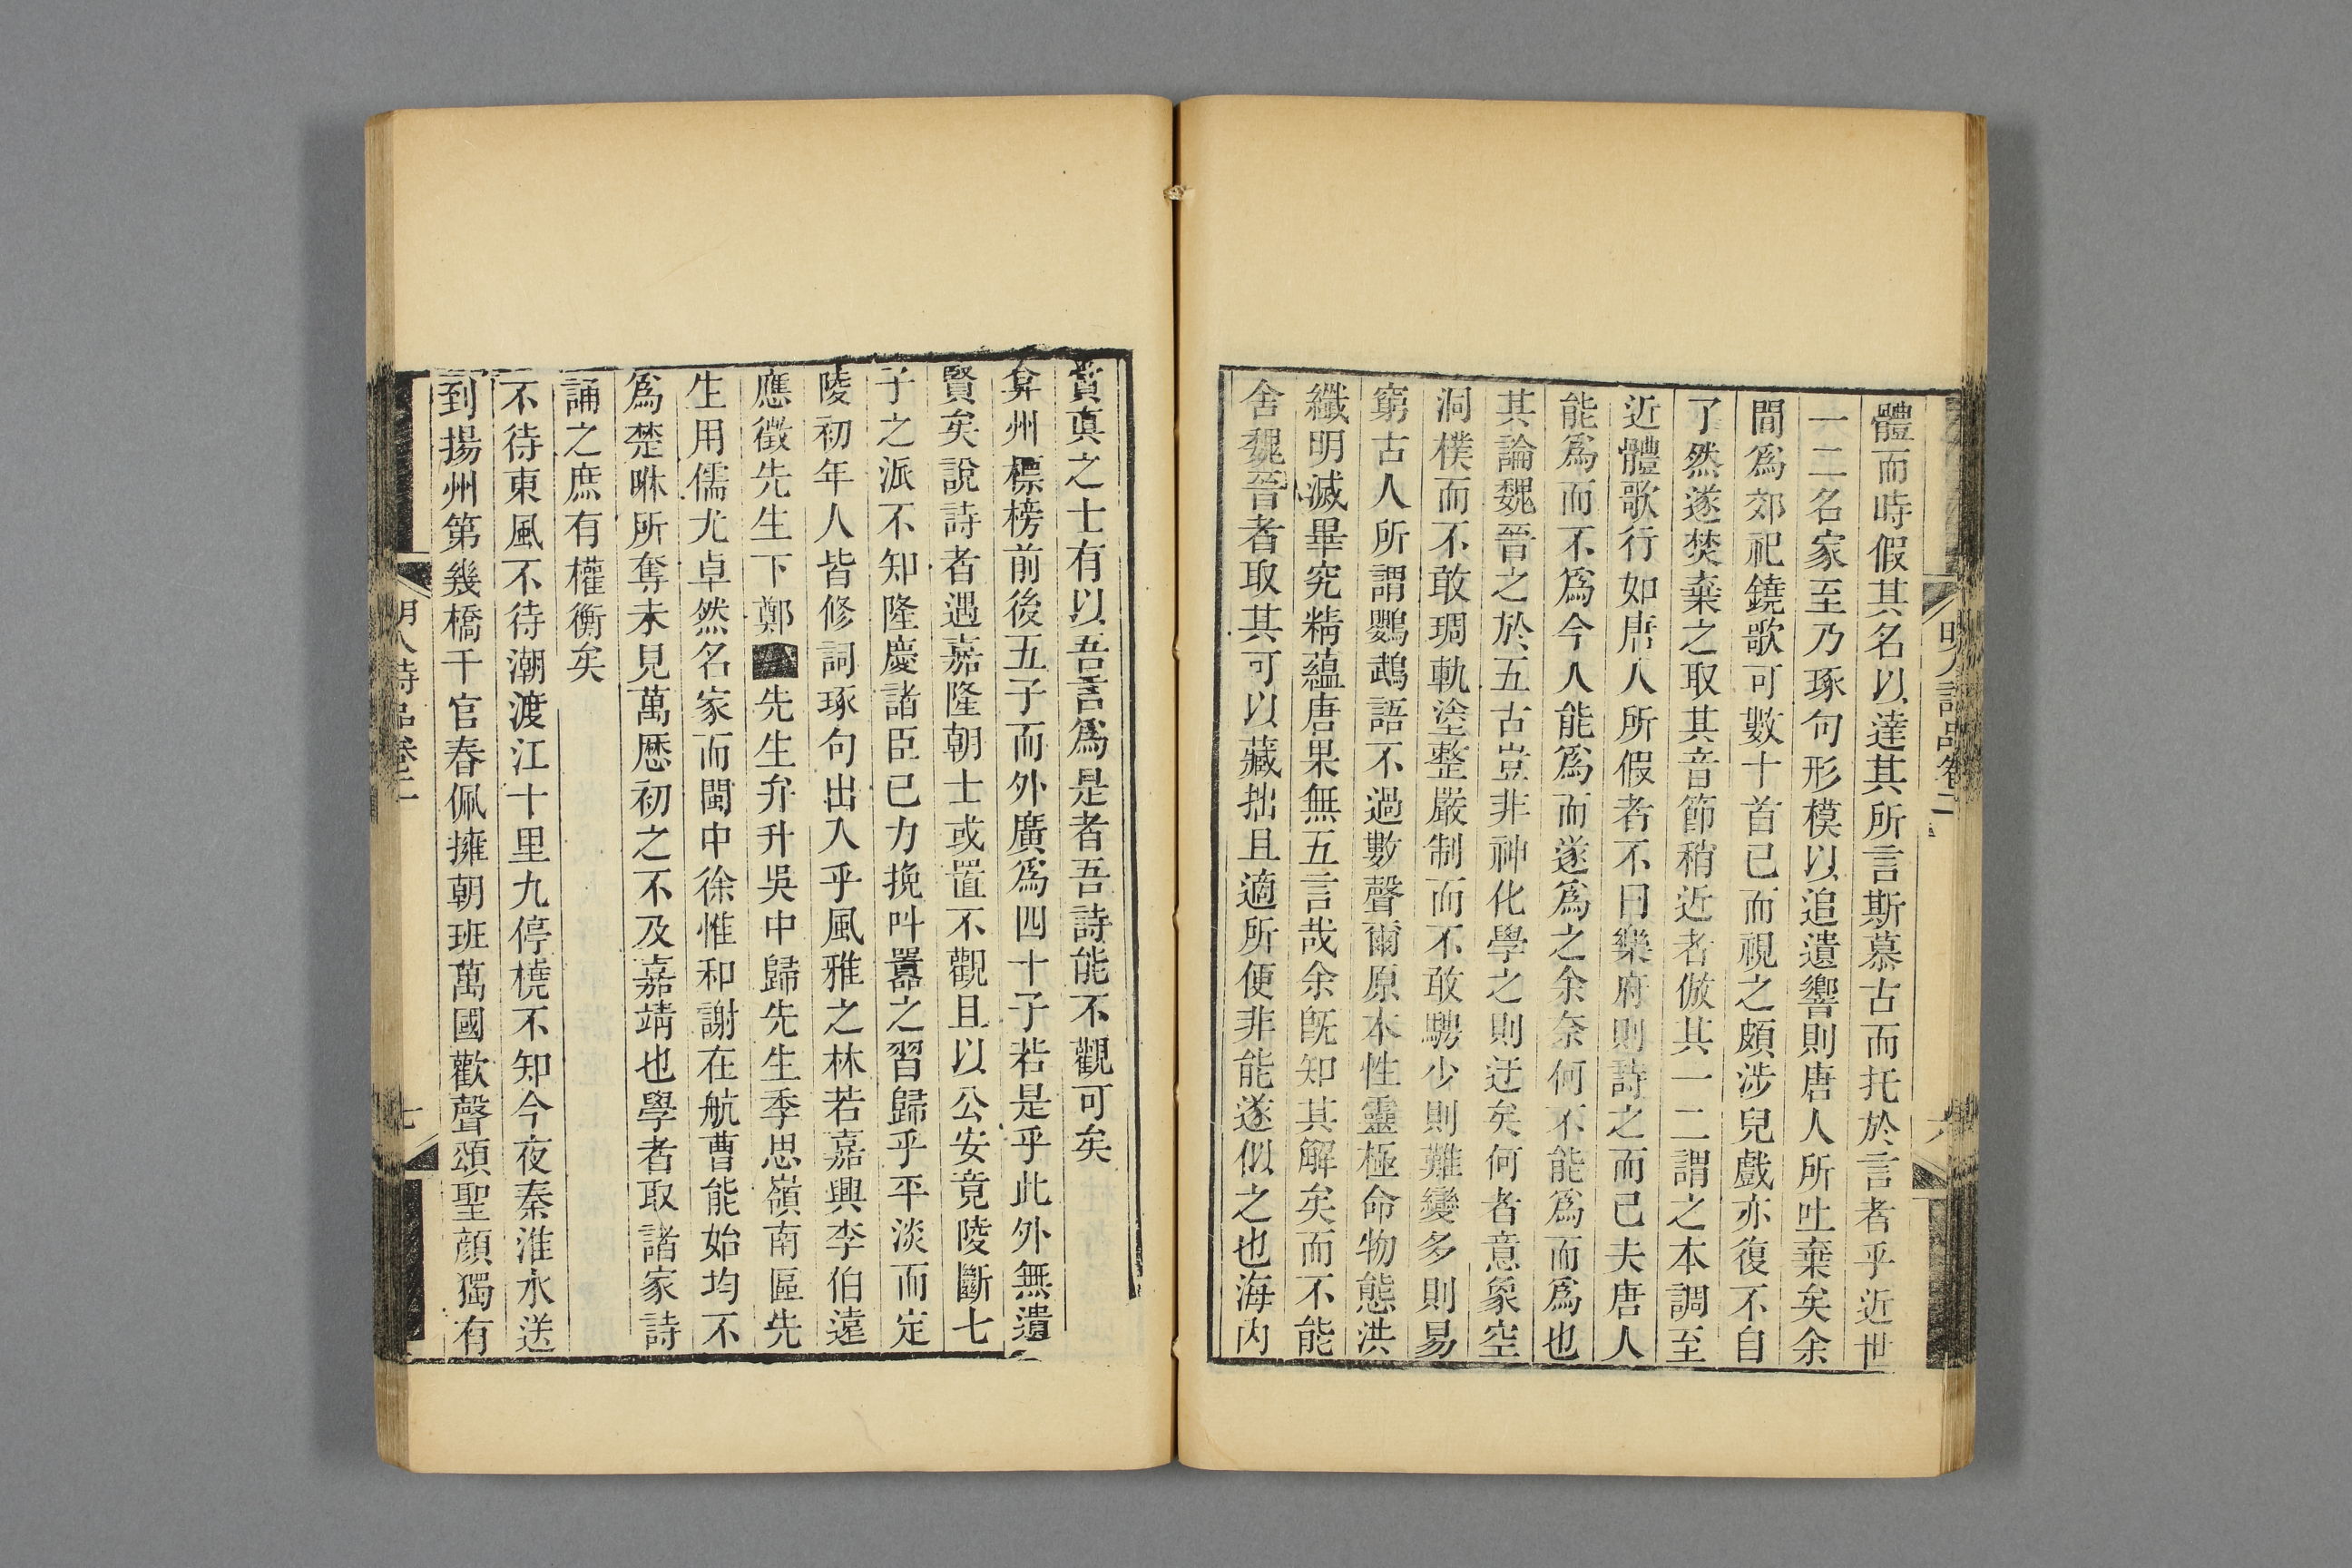 體而時假其名以達其所言斯慕古而托於言者乎近世
一二名家至乃琢句形模以追遺響則唐人所吐棄矣余
間爲郊祀鐃歌可數十首已而視之頗涉兒戲亦復不自
了然遂焚棄之取其音節稍近者倣其一二謂之本調至
近體歌行如唐人所假者不曰樂府則詩之而已夫唐人
能爲而不爲今人能爲而遂爲之余奈何不能爲而爲也
其論魏晉之於五古豈非神化學之則迂矣何者意象空
洞樸而不敢琱軌塗整嚴制而不敢騁少則難變多則易
窮古人所謂鸚鵡語不過數聲爾原本性靈極命物態洪
纖明滅畢究精蘊唐果無五言哉余旣知其解矣而不能
舍魏晉者取其可以藏拙且適所便非能遂似之也海內
明人詩品卷二
六
賞真之士有以吾言爲是者吾詩能不觀可矣
弇州標榜前後五子而外廣爲四十子若是乎此外無遺
賢矣說詩者遇嘉隆朝士或置不觀且以公安竟陵斷七
子之派不知隆慶諸臣已力挽呌囂之習歸乎平淡而定
陵初年人皆修詞琢句出入乎風雅之林若嘉興李伯遠
應徵先生下鄭先生弁升吳中歸先生季思嶺南區先
生用儒尤卓然名家而閩中徐惟和謝在航曹能始均不
爲楚咻所奪未見萬曆初之不及嘉靖也學者取諸家詩
誦之庶有權衡矣
不待東風不待潮渡江十里九停橈不知今夜秦淮水送
到揚州第幾橋千官春佩擁朝班萬國歡聲頌聖顔獨有
明人詩品卷二
七